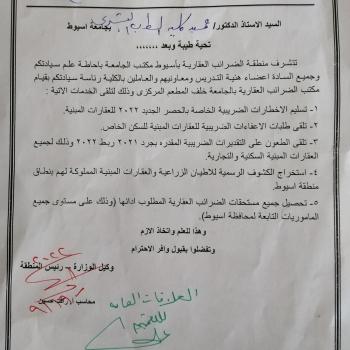 السيد الاستاذ الدكتور/ عميد كلية الطب البشرى بجامعة اسيوط
تحية طيبة وبعد .......
تتشرف منطقة الضرائب العقارية بأسيوط مكتب الجامعة باحاطة علم سيادتكم
وجميع السادة اعضاء هنية التدريس ومعاونيهم والعاملين بالكلية رئاسة سيادتكم بقيام
مكتب الضرائب العقارية بالجامعة خلف المطعم المركزى وذلك لتلقى الخدمات الاتية :
١- تسليم الاخطارات الضريبية الخاصة بالحصر الجديد ٢٠٢٢ للعقارات المبنية.
٢- تلقى طلبات الاعفاءات الضريبية للعقارات المبنية للسكن الخاص.
٣- تلقى الطعون على التقديرات الضريبية المقدره بجرد ٢٠٢١ ربط ٢٠٢٢ وذلك لجميع
العقارات المبنية السكنية والتجارية.
٤- استخراج الكشوف الرسمية للاطيان الزراعية والعقارات المبنية المملوكة لهم بنطاق
منطقة اسيوط.
٥- تحصيل جميع مستحقات الضرائب العقارية المطلوب ادائها (وذلك على مستوى جميع
الماموريات التابعة لمحافظة اسيوط).
وهذا للعلم واتخاذ الازم
وتفضلوا بقبول وافر الاحترام
وكيل الوزارة – رئيس المنطقة
محاسب / رأفت حسين
العلاقات العامه